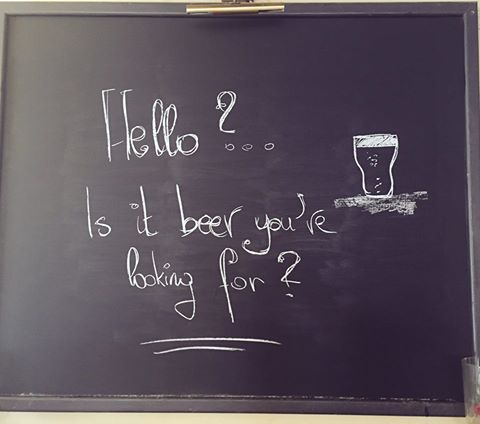 Hello? ...
Is it beer you're
looking for?